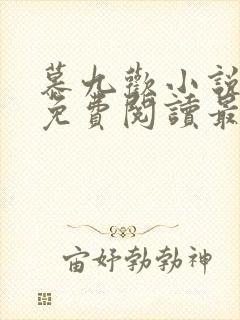 慕九歡小說
免費閱讀最
宙好勃勃神